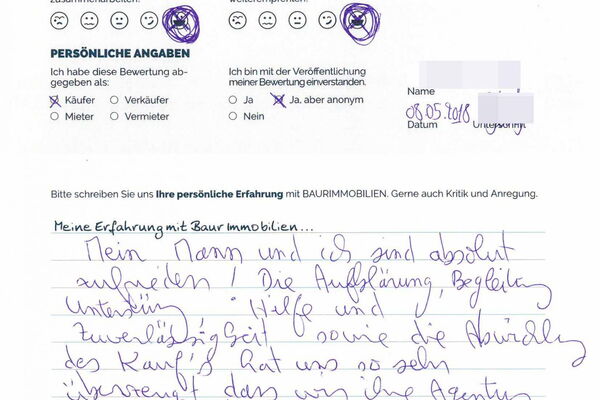 zusammenarbeiten.
weiterempfehlen.
PERSÖNLICHE ANGABEN
Ich habe diese Bewertung ab-
gegeben als:
Käufer Verkäufer
Mieter Vermieter
Ich bin mit der Veröffentlichung
meiner Bewertung einverstanden.
Ja Ja, aber anonym
Nein
Name
08.05.2018
Datum Unterschrift
Bitte schreiben Sie uns Ihre persönliche Erfahrung mit BAURIMMOBILIEN. Gerne auch Kritik und Anregung.
Meine Erfahrung mit Baur Immobilien...
Mein Mann und ich sind absolut
zufrieden! Die Aufklärung, Begleitung
Hilfe und
Zuverlässigkeit sowie die Abwicklung
des Kauf's hat uns so sehr
überzeugt dass wir ihre Agentur